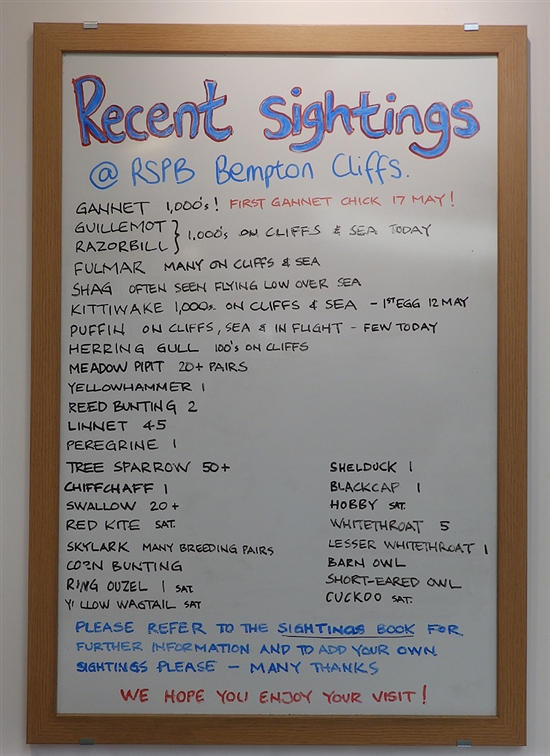 Recent Sightings
@ RSPB Bempton Cliffs.
GANNET 1,000's! FIRST GANNET CHICK 17 MAY!
GUILLEMOT
RAZORBILL } 1,000's ON CLIFFS & SEA TODAY
FULMAR MANY ON CLIFFS & SEA
SHAG OFTEN SEEN FLYING LOW OVER SEA
KITTIWAKE 1,000s ON CLIFFS & SEA - 1ST EGG 12 MAY
PUFFIN ON CLIFFS, SEA & IN FLIGHT - FEW TODAY
HERRING GULL 100's ON CLIFFS
MEADOW PIPIT 20+ PAIRS
YELLOWHAMMER 1
REED BUNTING 2
LINNET 45
PEREGRINE 1
TREE SPARROW 50+
CHIFFCHAFF 1
SWALLOW 20+
RED KITE SAT.
SKYLARK MANY BREEDING PAIRS
CORN BUNTING
RING OUZEL 1 SAT
YELLOW WAGTAIL SAT
SHELDUCK 1
BLACKCAP 1
HOBBY SAT.
WHITETHROAT 5
LESSER WHITETHROAT 1
BARN OWL
SHORT-EARED OWL
CUCKOO SAT.
PLEASE REFER TO THE SIGHTINGS BOOK FOR
FURTHER INFORMATION AND TO ADD YOUR OWN
SIGHTINGS PLEASE - MANY THANKS
WE HOPE YOU ENJOY YOUR VISIT!